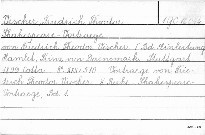 Vischer, Friedrich Theodor
Shakespeare-Vortraege
von Friedrich Theodor Vischer 1 Bd. Einleitung
Hamlet, Prinz von Daenemark. Stuttgart
1899 Cotta 8° XXI 510 Vortraege von Frie-
drich Theodor Vischer 2 Reihe Shakespeare-
Vortraege, Bd. 1.